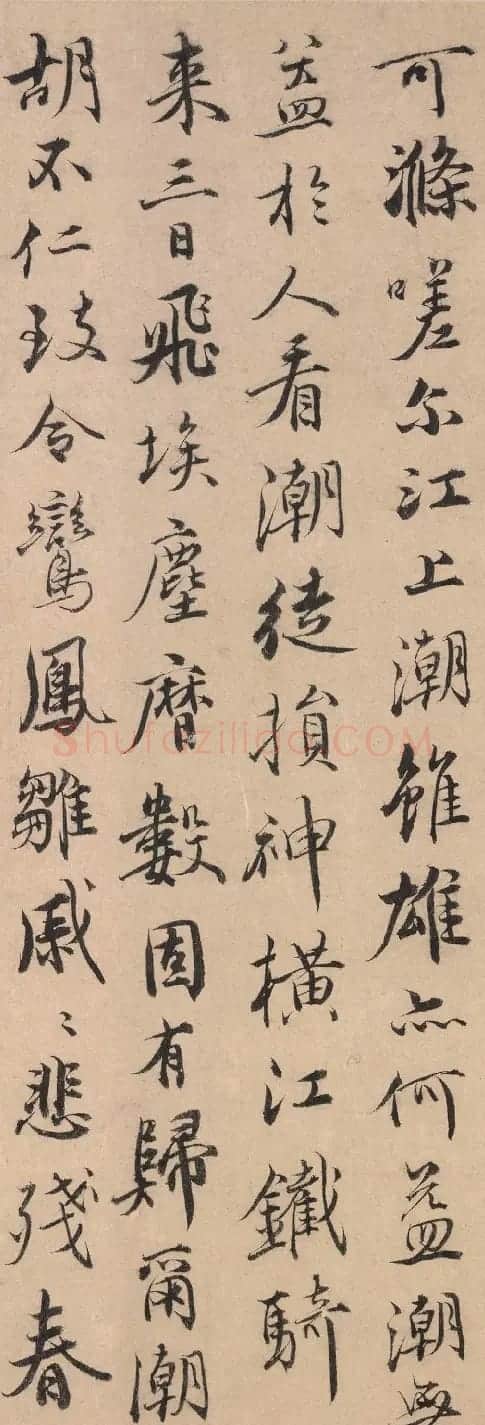 可滌嗟尔江上潮雖雄亦何益潮無
益於人看潮徒損神橫江鐵騎
来三日飛埃塵曆數固有歸爾潮
胡不仁致令鸞鳳雛戚〻悲殘春
shufaziliao.COM